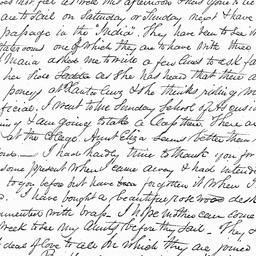 not feel as well this afternoon
are to sail on Saturday or Sunday next I have
passage in the India. They have been to see th
staterooms one of which they are to have with three
Maria asked me to write a few lines to ask fa
her side saddle as She has heard that there a
poney at Santa Cruz & she thinks riding
ficial. I went to the Sunday School of
& I am going to take a Class there. There are
at the Stage. Aunt Eliza seems better than
I had hardly time to thank you for
some present when I came away & had intended
to you before but have forgotten it when I
I have bought a beautiful rose wood desk
mented with brass. I hope mother can come
week to see my Aunty before they sail. They
deal of love to all in which they are joined